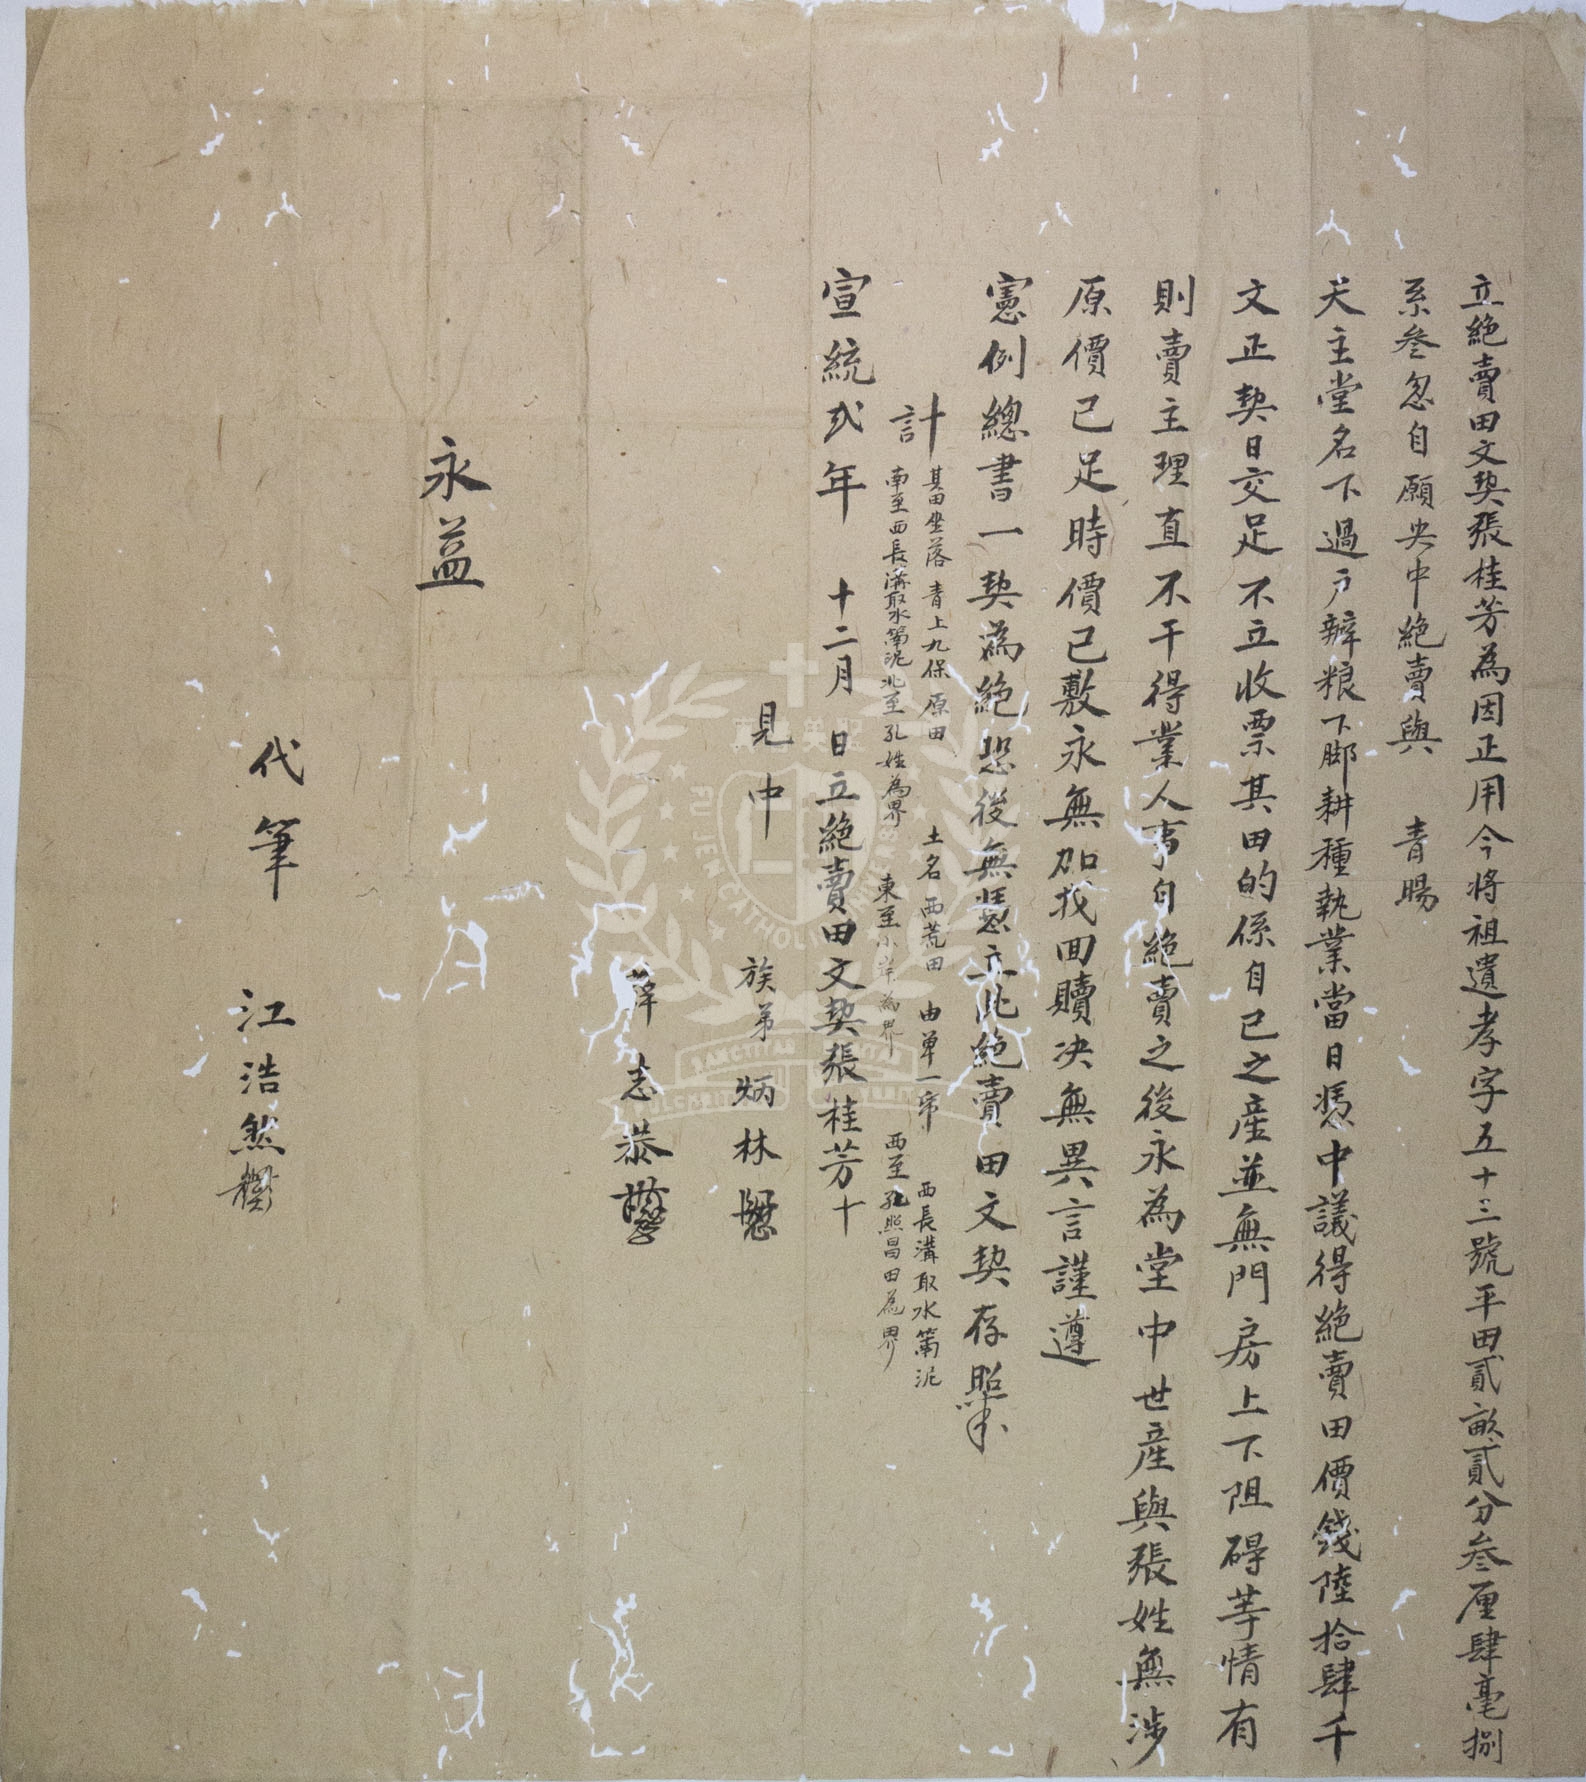 立絶賣田文契張桂芳為因正用今將祖遺孝字五十三號平田貳畝貳分叁厘肆毫捌
系叁忽自願央中絶賣與　青暘
天主堂名下過戶辦粮下脚耕種執業當日憑中議得絶賣田價錢陸拾肆千
文正契日交足不立收票其田的係自己之産並無門房上下阻碍等情有
則賣主理直不干得業人事自絶賣之後永為堂中世産與張姓無涉
原價已足時價已敷永無加找回贖决無異言謹遵
憲例總書一契為絶恐後無憑立此絶賣田文契存照
計
其田坐落青上九保原田　土名西荒田　由單一帋　西長溝取水罱泥
南至西長溝取水罱泥北至孔姓為界　東至小岸為界　西至孔照昌田為界
宣統弍年　十二月　日立絶賣田文契張桂芳十
見中　族弟炳林
薛志恭
永益
代筆　江浩然
FU JEN CATHOLIC UNIVERSITY